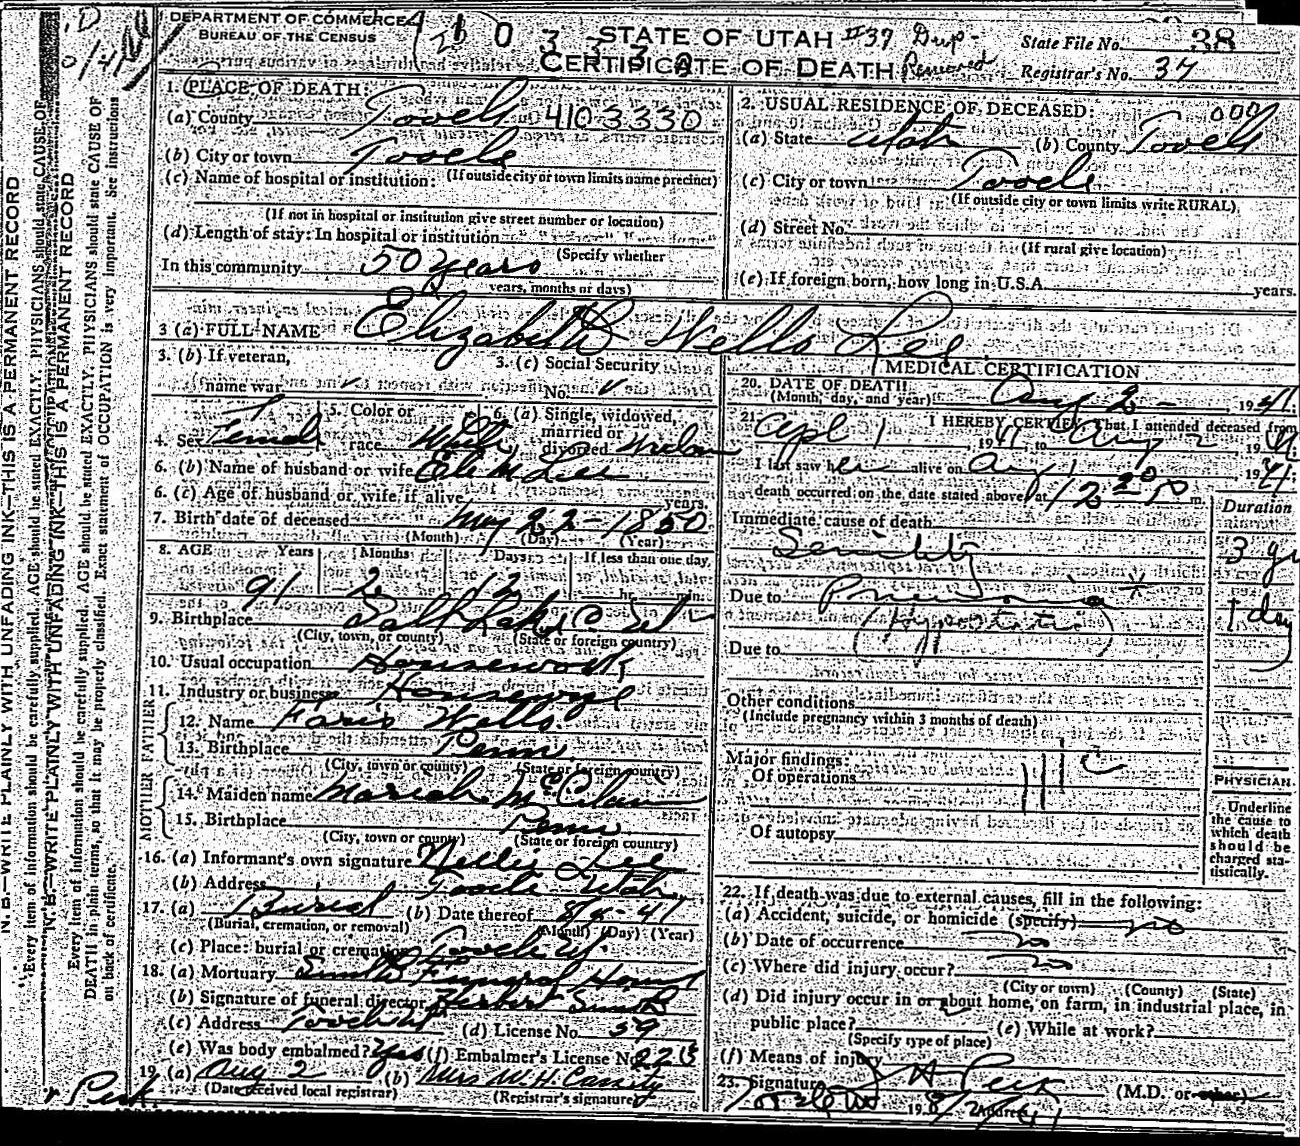 DEPARTMENT OF COMMERCE
BUREAU OF THE CENSUS
STATE OF UTAH
CERTIFICATE OF DEATH
State File No. 38
Registrar's No. 37
1. PLACE OF DEATH:
(a) County Tooele 4103330
(b) City or town Tooele
(If outside city or town limits name precinct)
(c) Name of hospital or institution:
(If not in hospital or institution give street number or location)
(d) Length of stay: In hospital or institution
(Specify whether
In this community 50 years
years, months or days)
2. USUAL RESIDENCE OF DECEASED:
(a) State Utah (b) County Tooele
(c) City or town Tooele
(If outside city or town limits write RURAL)
(d) Street No.
(If rural give location)
(e) If foreign born, how long in U.S.A. years.
3 (a) FULL NAME Elizabeth Wells Lee
3. (b) If veteran,
name war
3. (c) Social Security
No.
4. Sex Female
5. Color or
race White
6. (a) Single, widowed,
married or
divorced Widow
6. (b) Name of husband or wife Eli M Lee
6. (c) Age of husband or wife if alive years.
7. Birth date of deceased May 22 - 1850
(Month) (Day) (Year)
8. AGE Years Months Days If less than one day,
91 2 12 hr. min.
9. Birthplace Salt Lake C
(City, town, or county) (State or foreign country)
10. Usual occupation Housework
11. Industry or business Housewife
FATHER
12. Name Faris Wells
13. Birthplace Penn.
(City, town or county) (State or foreign country)
MOTHER
14. Maiden name Mariah
15. Birthplace Penn
(City, town or county) (State or foreign country)
16. (a) Informant's own signature Nellie Lee
(b) Address Tooele Utah
17. (a) Burial (b) Date thereof
(Burial, cremation, or removal) (Month) (Day) (Year)
(c) Place: burial or cremation Tooele Ut.
18. (a) Mortuary Smith Funeral Home
(b) Signature of funeral director Herbert Smith
(c) Address Tooele Ut (d) License No. 59
(e) Was body embalmed? Yes (f) Embalmer's License No. 225
19 (a) Aug 2 (b) Mrs W. H. Cassity
(Date received local registrar) (Registrar's signature)
MEDICAL CERTIFICATION
20. DATE OF DEATH:
(Month, day, and year) Aug 2 - , 1941
21. I HEREBY CERTIFY That I attended deceased from
Apl 1 1941, to Aug 2, 1941.
I last saw her alive on Aug 1 1941.
death occurred on the date stated above at m.
Duration
Immediate cause of death
Senility 3 yr
Due to Pneumonia * 1 day
(Hypostatic)
Due to
Other conditions
(Include pregnancy within 3 months of death)
Major findings:
Of operations
Of autopsy
PHYSICIAN
Underline
the cause to
which death
should be
charged sta-
tistically.
22. If death was due to external causes, fill in the following:
(a) Accident, suicide, or homicide (specify) no
(b) Date of occurrence no
(c) Where did injury occur? no
(City or town) (County) (State)
(d) Did injury occur in or about home, on farm, in industrial place, in
public place? (e) While at work?
(Specify type of place)
(f) Means of injury
23. Signature J H Peck (M.D. or other)
N. B.—WRITE PLAINLY WITH UNFADING INK—THIS IS A PERMANENT RECORD
Every item of information should be carefully supplied. AGE should be stated EXACTLY. PHYSICIANS should state CAUSE OF
DEATH in plain terms, so that it may be properly classified. Exact statement of OCCUPATION is very important. See instructions
on back of certificate.